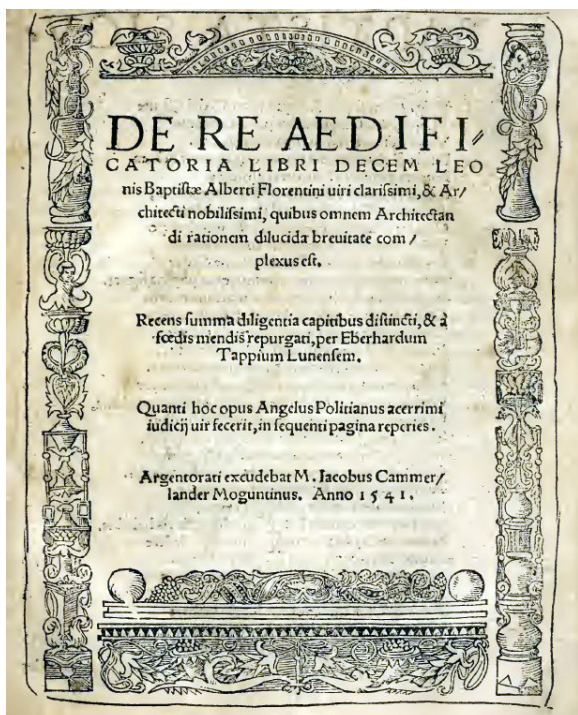 DE RE AEDIFI⸗
CATORIA LIBRI DECEM LEO
nis Baptiſtæ Alberti Florentini uiri clariſsimi, & Ar⸗
chitecti nobiliſsimi, quibus omnem Architectan
di rationem dilucida breuitate com⸗
plexus eſt.
Recens ſumma diligentia capitibus diſtincti, & à
fœdis mendis repurgati, per Eberhardum
Tappium Lunenſem.
Quanti hoc opus Angelus Politianus acerrimi
iudicij uir fecerit, in ſequenti pagina reperies.
Argentorati excudebat M. Iacobus Cammer⸗
lander Moguntinus. Anno 1541.